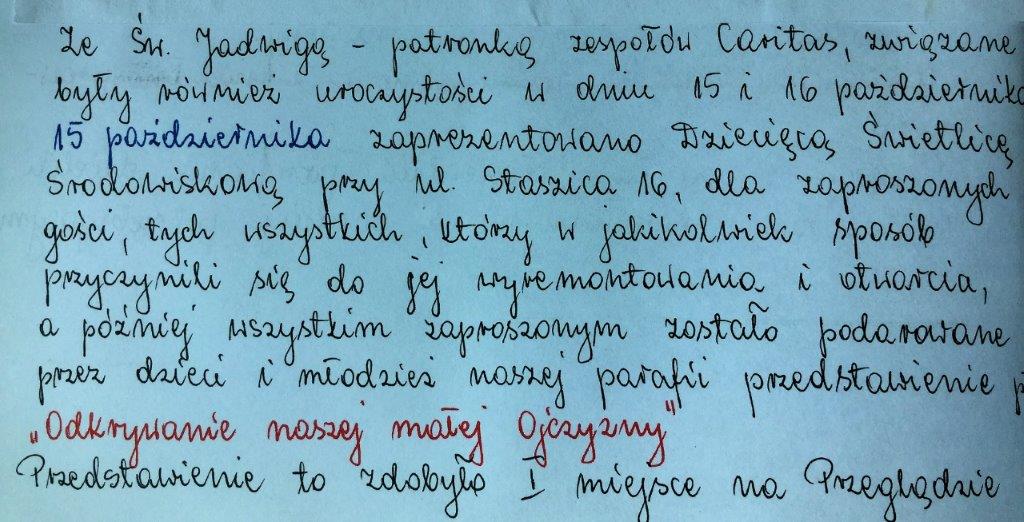 Ze Św. Jadwigą - patronką zespołów Caritas, związane
były również uroczystości w dniu 15 i 16 październik
15 października zaprezentowano Dziecięcą Świetlicę
Środowiskową przy ul. Staszica 16, dla zaproszonych
gości, tych wszystkich, którzy w jakikolwiek sposób
przyczynili się do jej wyremontowania i otwarcia,
a później wszystkim zaproszonym zostało podarowane
przez dzieci i młodzież naszej parafii przedstawienie p
„Odkrywanie naszej małej Ojczyzny"
Przedstawienie to zdobyło I miejsce na Przeglądzie